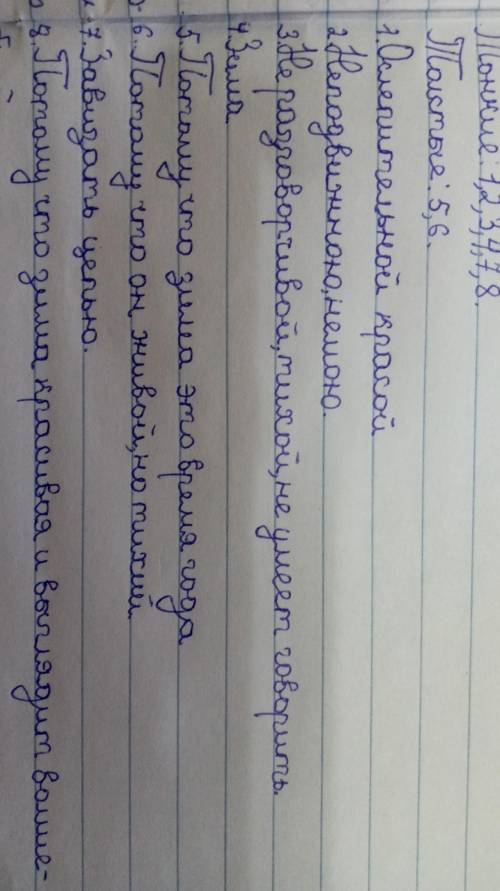 Тонкие: 1,2,3,4,7,8.
Толстые: 5,6.
1.Ослепительной красой
2.Неподвижною,немою.
3.Не разговорчивой,тихой,не умеет говорить.
4.Зима
5.Потому что зима это время года
6.Потому что он живой,но тихий.
7.Завязать цепью.
8.Потому что зима красивая и выглядит волше-